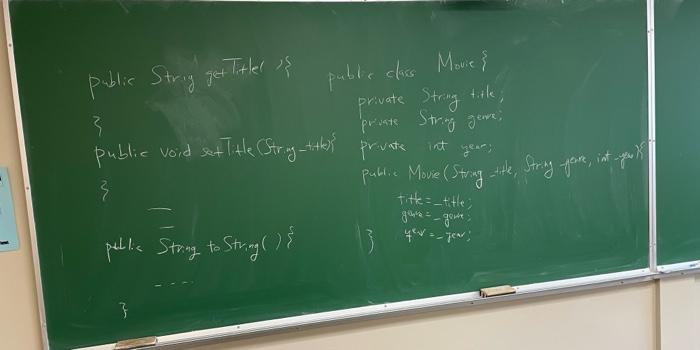 public String getTitle( ){
}
public void setTitle(String _title){
}
public String toString( ){
- - - -
}
public class Movie {
private String title;
private String genre;
private int year;
public Movie(String _title, String _genre, int _year){
title = _title;
genre = _genre;
year = _year;
}